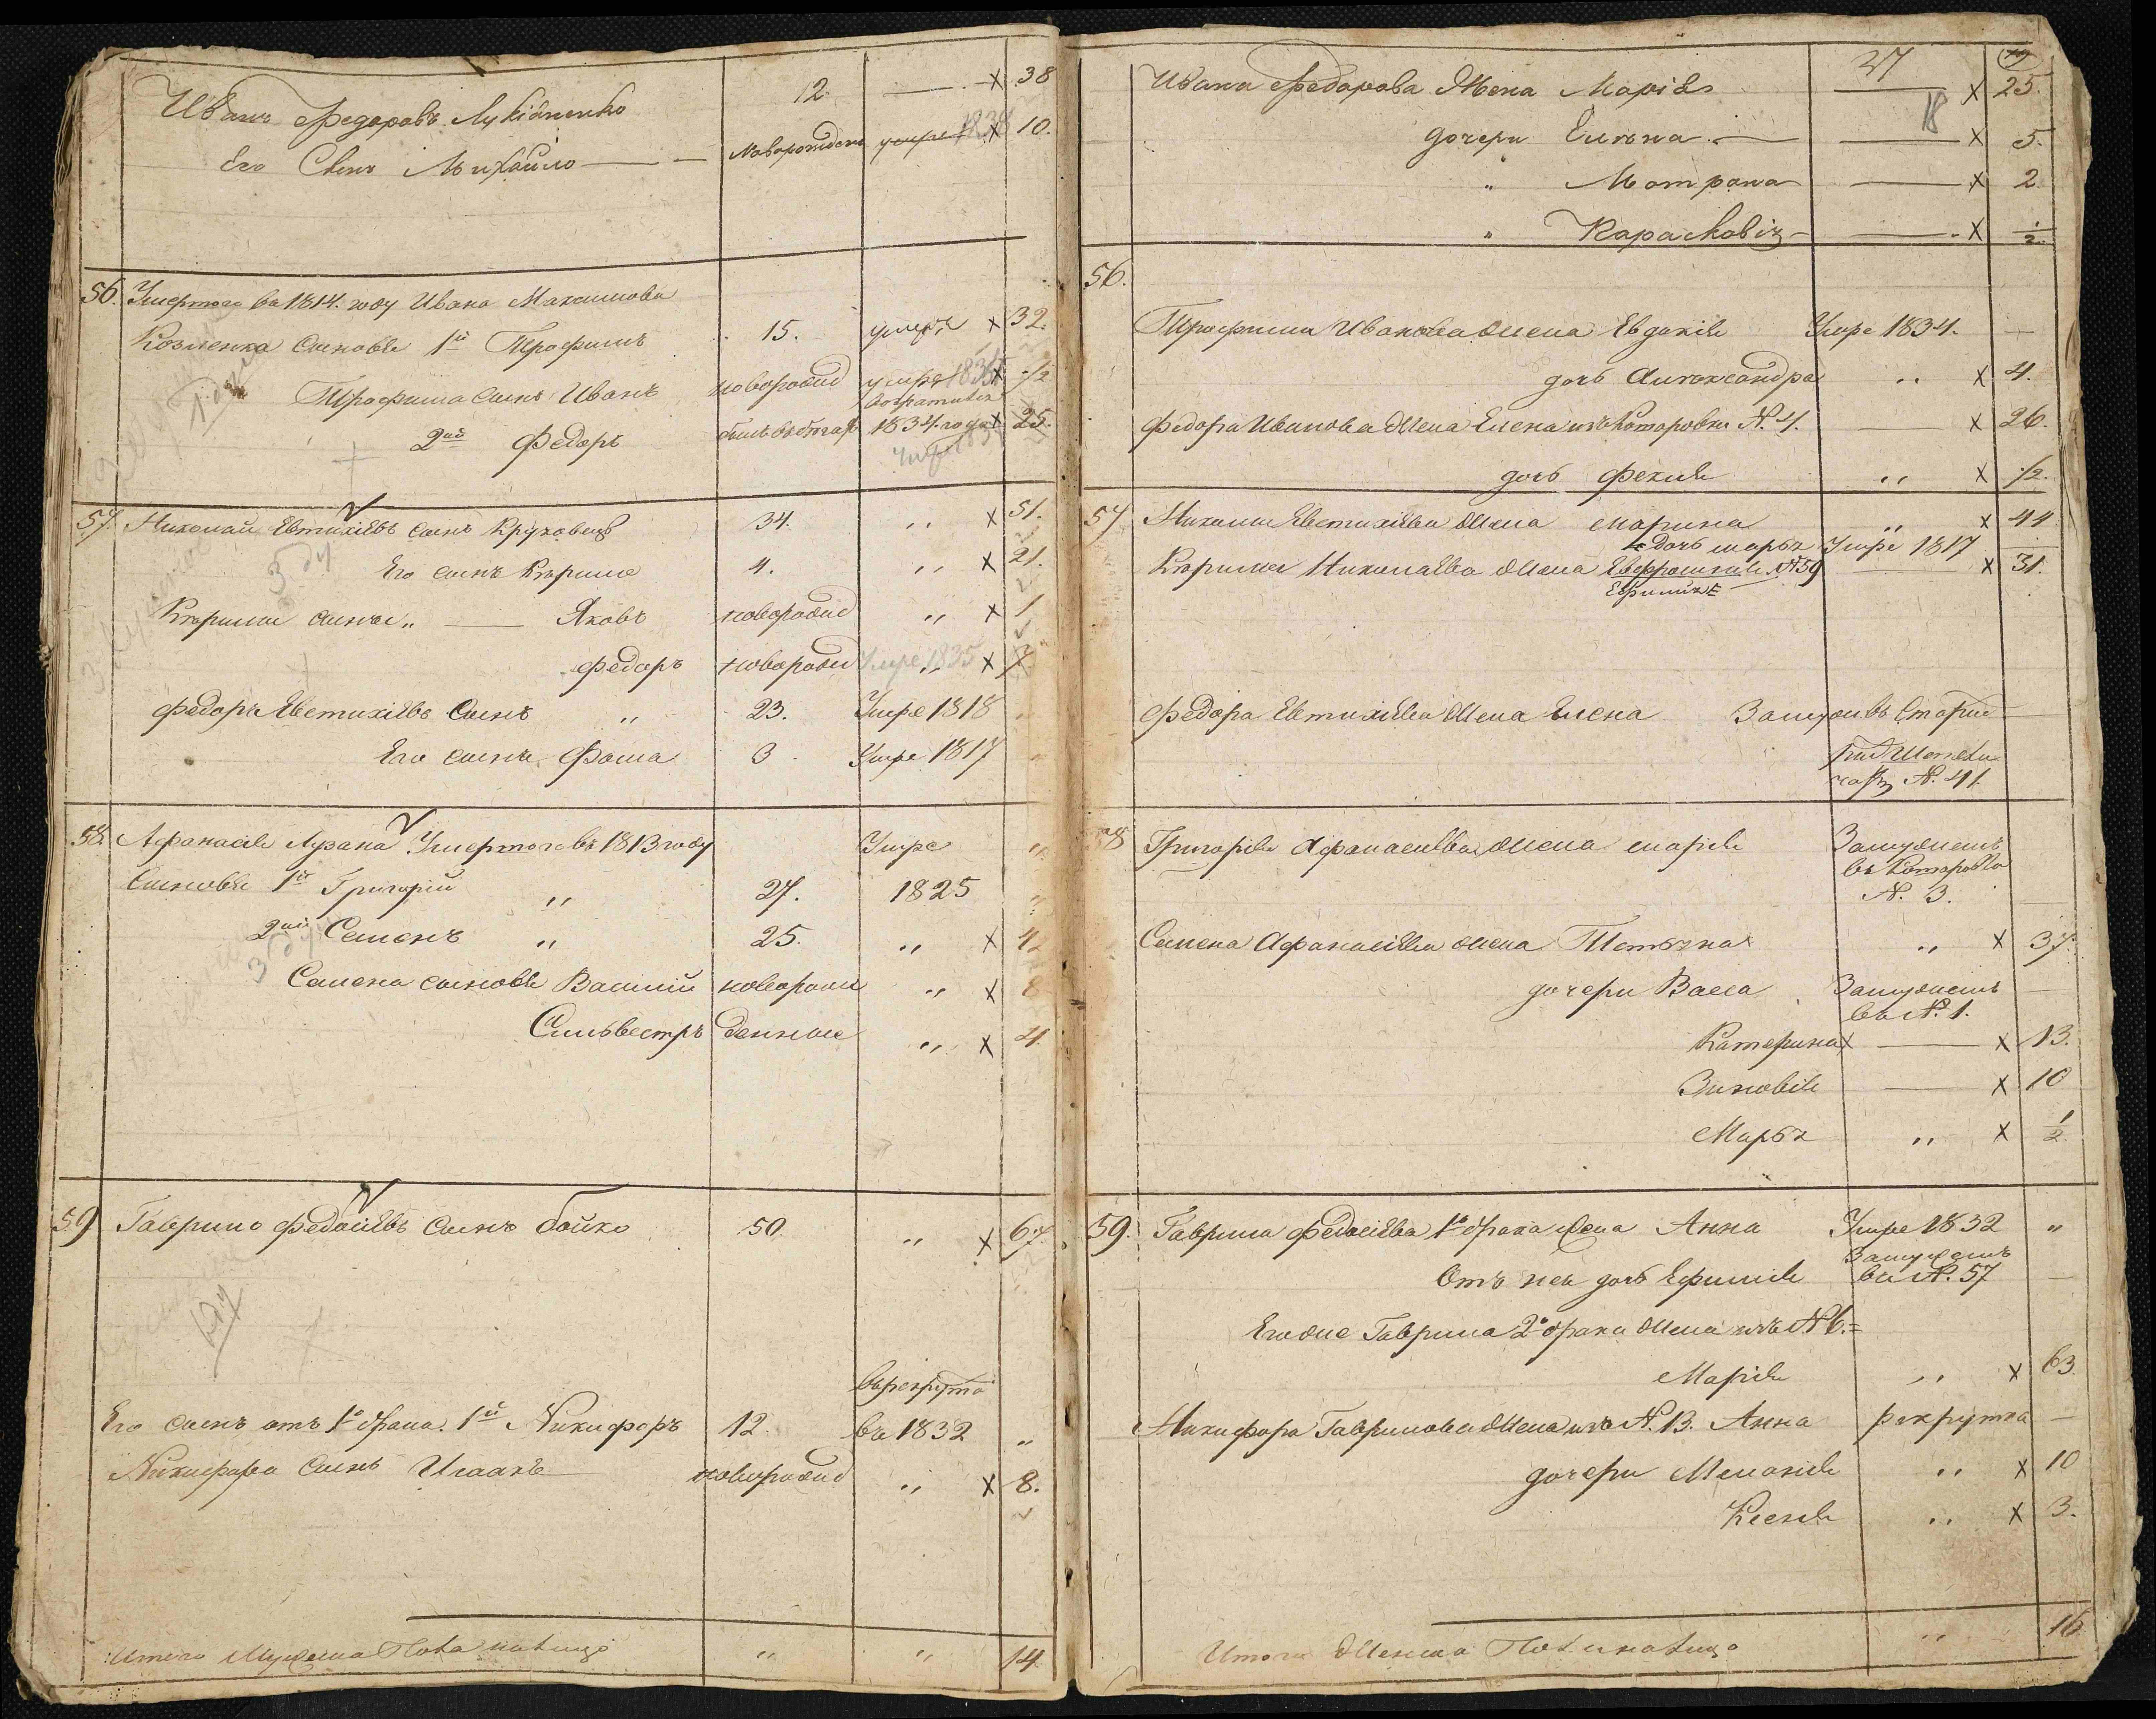 Иванъ Федоровъ Лукіяненко 12 — х 38
Его Сынъ Михайло — новорожден умре 1838 х 10.
56. Умершаго въ 1814. году Ивана Максимова
Козленка сыновья 1й Трофимъ 15. умре х 32.
Трофима сынъ Иванъ новорожд умре 1835 х 1/2
возратился
2ой Федоръ былъ въ бегах 1834. года х 25.
умре 183
57. Николай Евтихіевъ сынъ Круховецъ 34. " х 51.
Его сынъ Кирило 4. " х 21.
Кирила сыны " — Яковъ новорожд " х 1
Федоръ новорожд Умре 1835 х 7
Федоръ Евтихіевъ Сынъ " 23. Умре 1818
Его сынъ Фома 3 Умре 1817
58. Афанасія Лузана Умершаго въ 1813 году Умре "
Сыновья 1й Григорій " 27. 1825 "
2ой Семенъ " 25. " х 4
Семена сыновья Василій новорож " х 8
Сильвестръ денные " х 4
59 Гаврило Федосіевъ Сынъ Бойко 50. " х 67.
въ рекруты
Его сынъ отъ 1о брака. 1й Никифоръ 12. въ 1832 "
Никифора Сынъ Исаакъ новорожд " х 8.
Итого Мужеска Пола налицо " " 14
27
Ивана Федорова Жена Марія — х 25.
18
дочери Елена — — х 5.
" Мотрона — х 2
" Парасковія — — х 1/2
56.
Трофима Иванова жена Евдокія Умре 1834. —
дочь Александра " х 4.
Федора Иванова жена Елена изъ Комаровки N. 4. — х 26.
дочь Фекла " х 1/2.
57 Николая Евтихіева жена Марина " х 44
дочь Марья Умре 1817
Кирила Николаева жена Евфросинія N 59 — х 31.
Ефимія
Федора Евтихіева жена Елена Замужъ въ Старие
N. 41.
58 Григорія Афанасіева жена Марія Замужемъ
въ Комаровке
N. 3.
Семена Афанасіева жена Тетяна " х 37.
дочери Васса Замужемъ —
въ N. 1.
Катерина х — х 13.
Зиновія — х 10
Марья " х 1/2
59. Гаврила Федосіева 1о брака жена Анна Умре 1832 "
Замужемъ
Отъ нея дочь Ефимія въ N. 57 —
Его же Гаврила 2о брака жена изъ N 6. =
Марія " х 63
Никифора Гаврилова жена изъ N. 13. Анна рекрутка —
дочери Меланія " х 10
Ксенія " х 3.
Итого Женска Пола налицо " 16